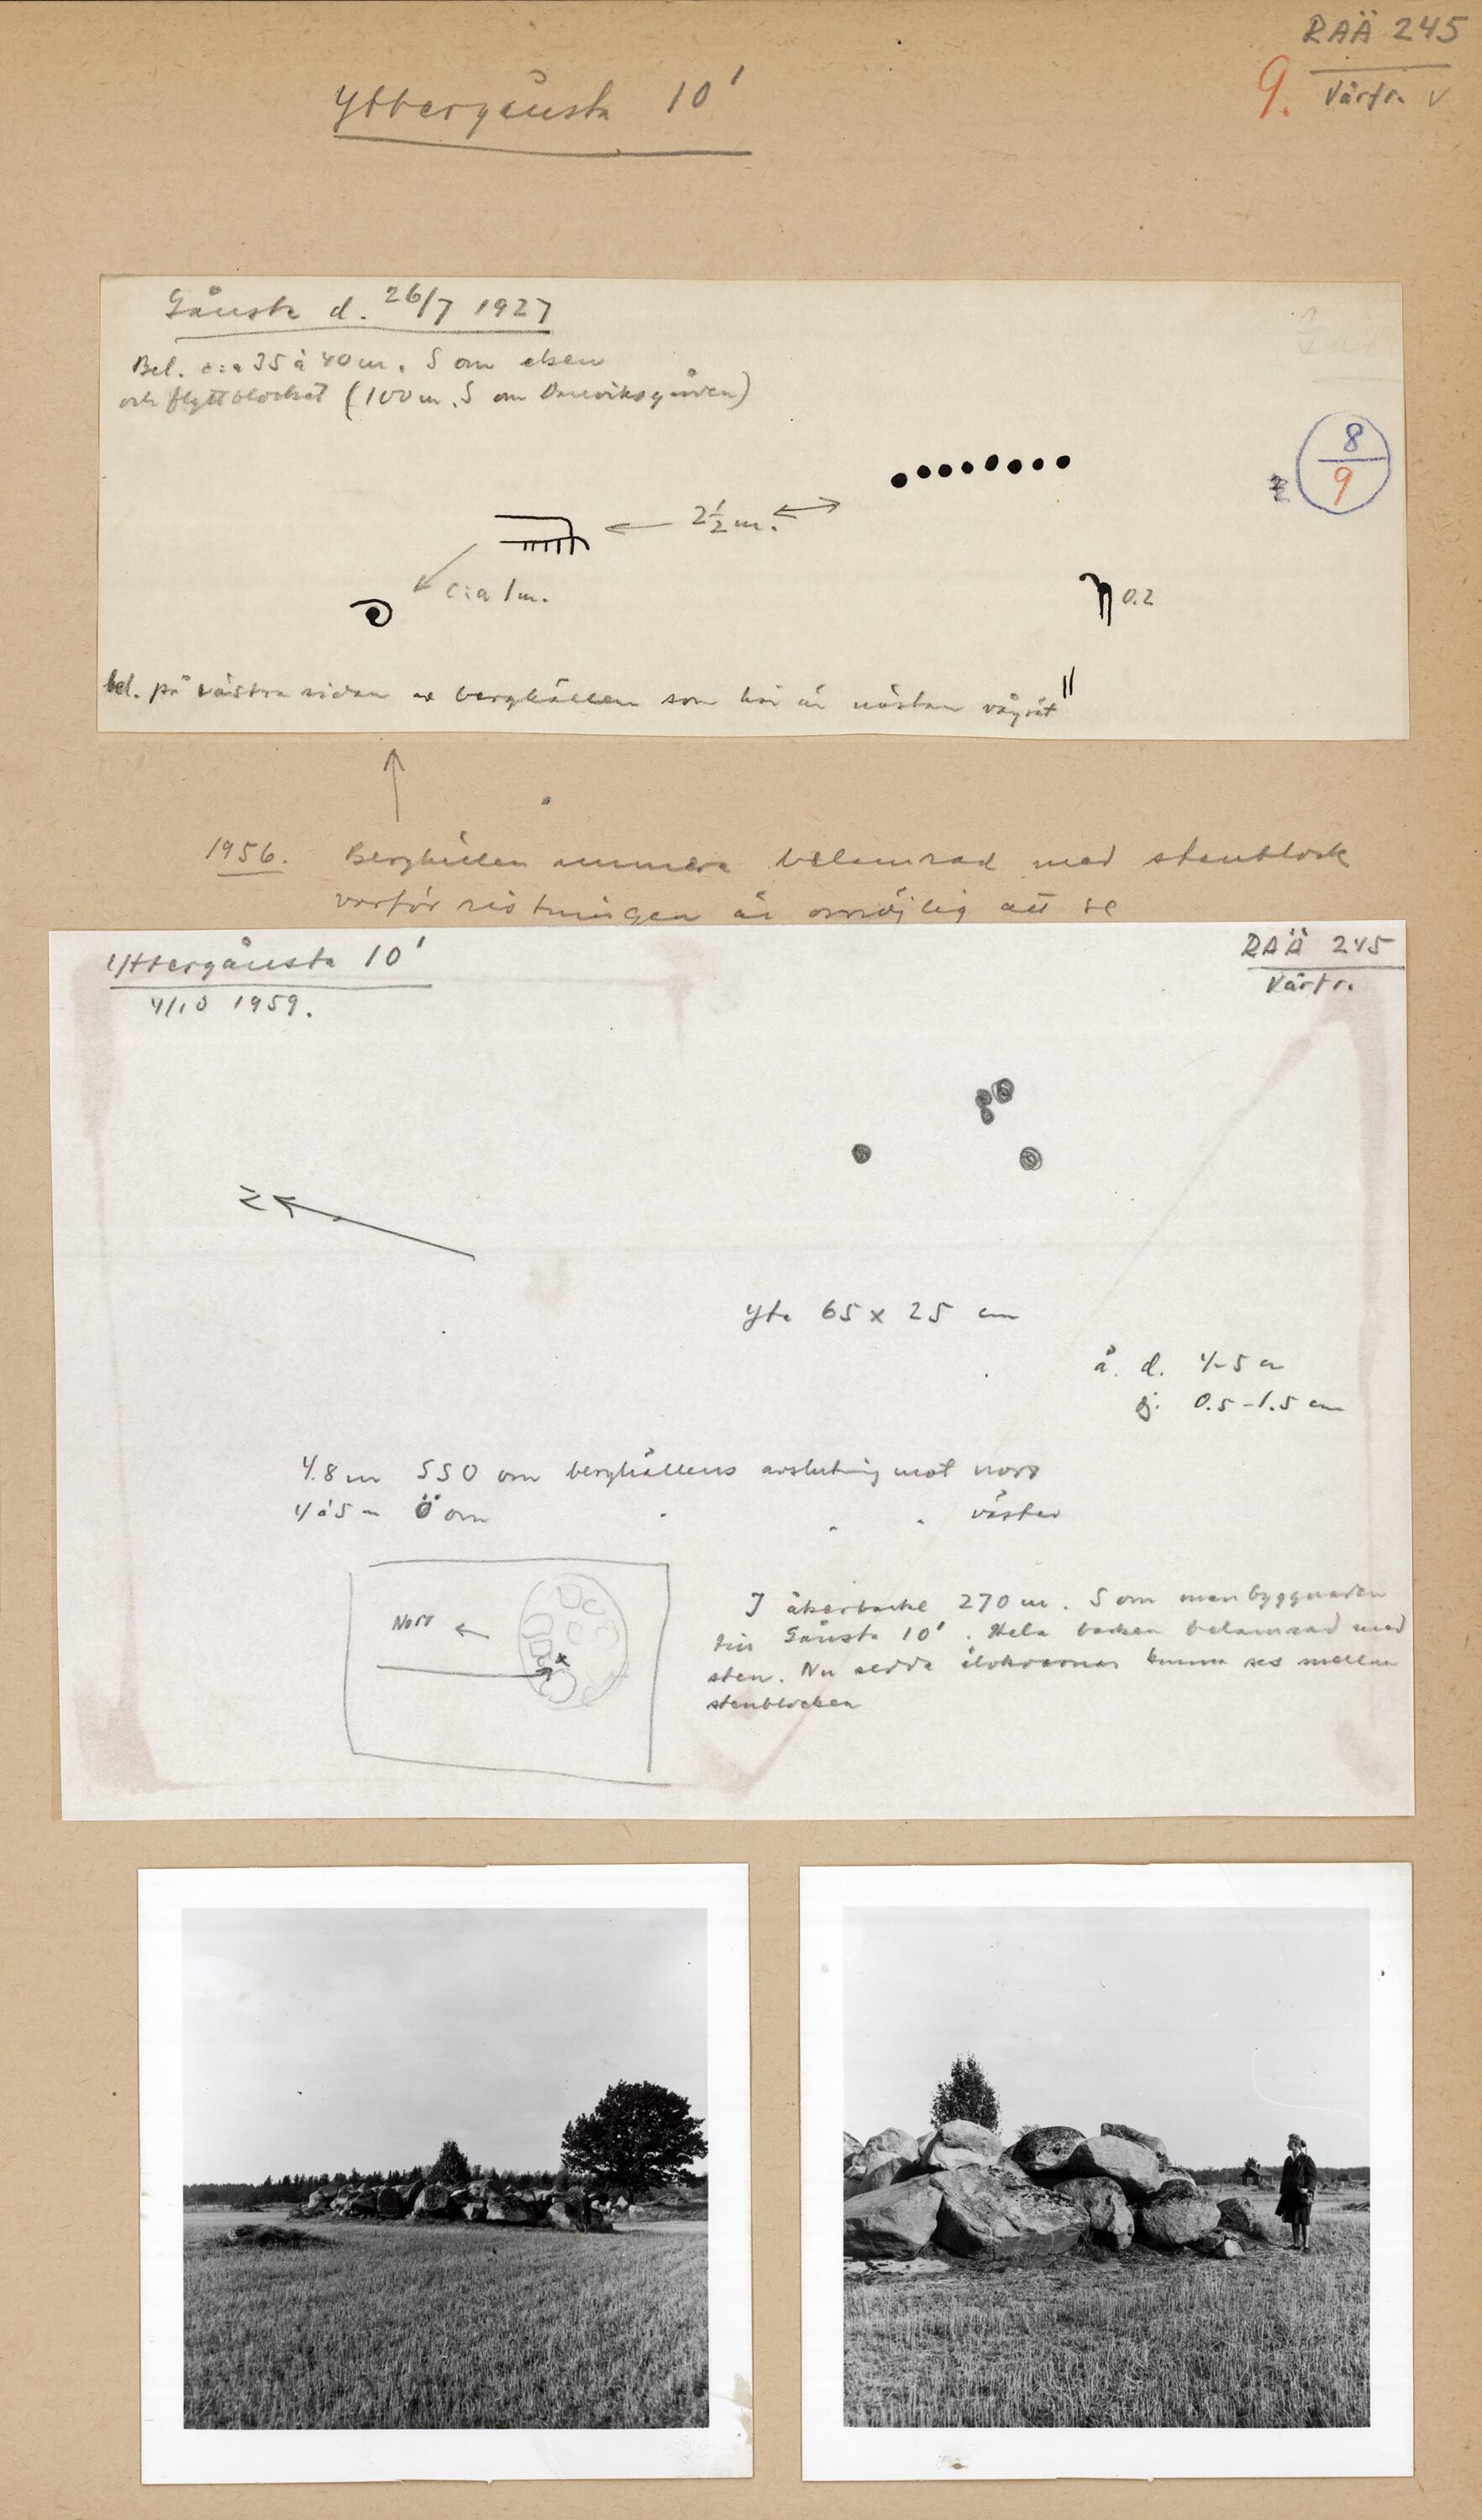 RAÄ 245
9. Vårfr. V
Yttergånsta 10'
Gånsta d. 26/7 1927
Bel. c:a 35 à 40 m. S om eken
och flyttblocket (100 m. S om
8
9
2½ m.
c:a 1 m.
0.2
bel. på västra sidan av berghällen som här är nästan vågrät
1956. Berghällen numera belamrad med stenblock
varför ristningen är omöjlig att se
Yttergånsta 10'
4/10 1959.
RAÄ 245
Vårfr.
N
Yta 65 x 25 cm
å. d. 4-5 cm
dj. 0.5-1.5 cm
4.8 m SSO om berghällens avslutning mot norr
4 à 5 m Ö om " " " väster
Norr
x
I åkerbacke 270 m. S om manbyggnaden
till Gånsta 10'. Hela backen belamrad med
sten. Nu sedda älvkvarnar kunna ses mellan
stenblocken